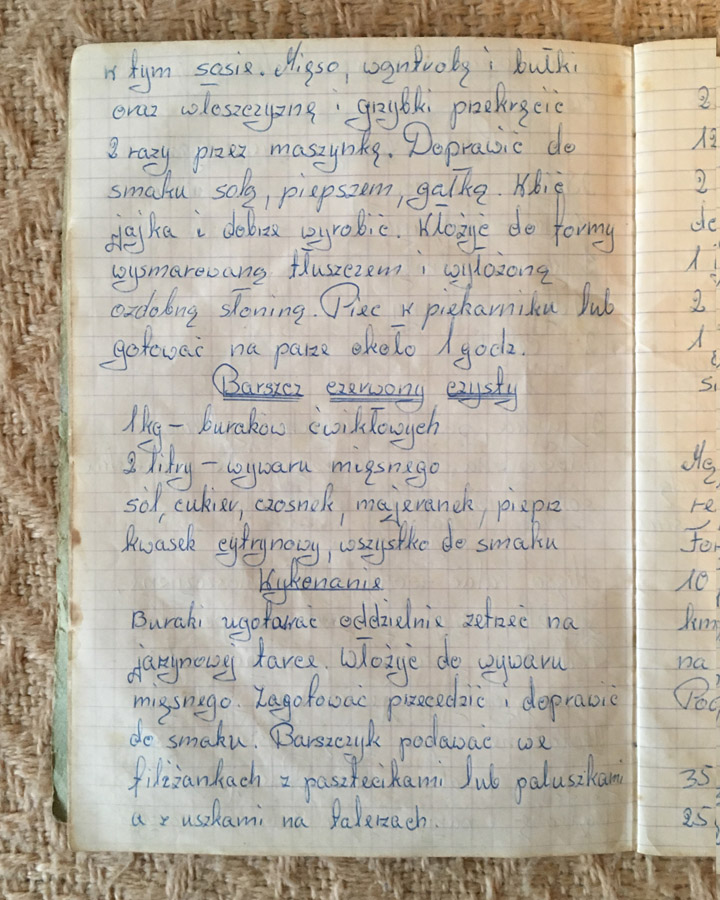 w tym sosie. Mięso, wąntrobę i bułki
oraz włoszczyznę i grzybki przekręcić
2 razy przez maszynkę. Doprawić do
smaku solą, piepszem, gałką. Wbić
jajka i dobrze wyrobić. Włożyć do formy
wysmarowaną tłuszczem i wyłożoną
ozdobną słoniną. Piec w piekarniku lub
gotować na parze około 1 godz.
Barszcz czerwony czysty
1 kg – buraków ćwikłowych
2 litry – wywaru mięsnego
sól, cukier, czosnek, majeranek, pieprz
kwasek cytrynowy, wszystko do smaku
Wykonanie
Buraki ugotować oddzielnie zetrzeć na
jarzynowej tarce. Włożyć do wywaru
mięsnego. Zagotować przecedzić i doprawić
do smaku. Barszczyk podawać we
filiżankach z pasztecikami lub paluszkami
a z uszkami na talerzach.
2
2
1
2
1
10
na
35
25